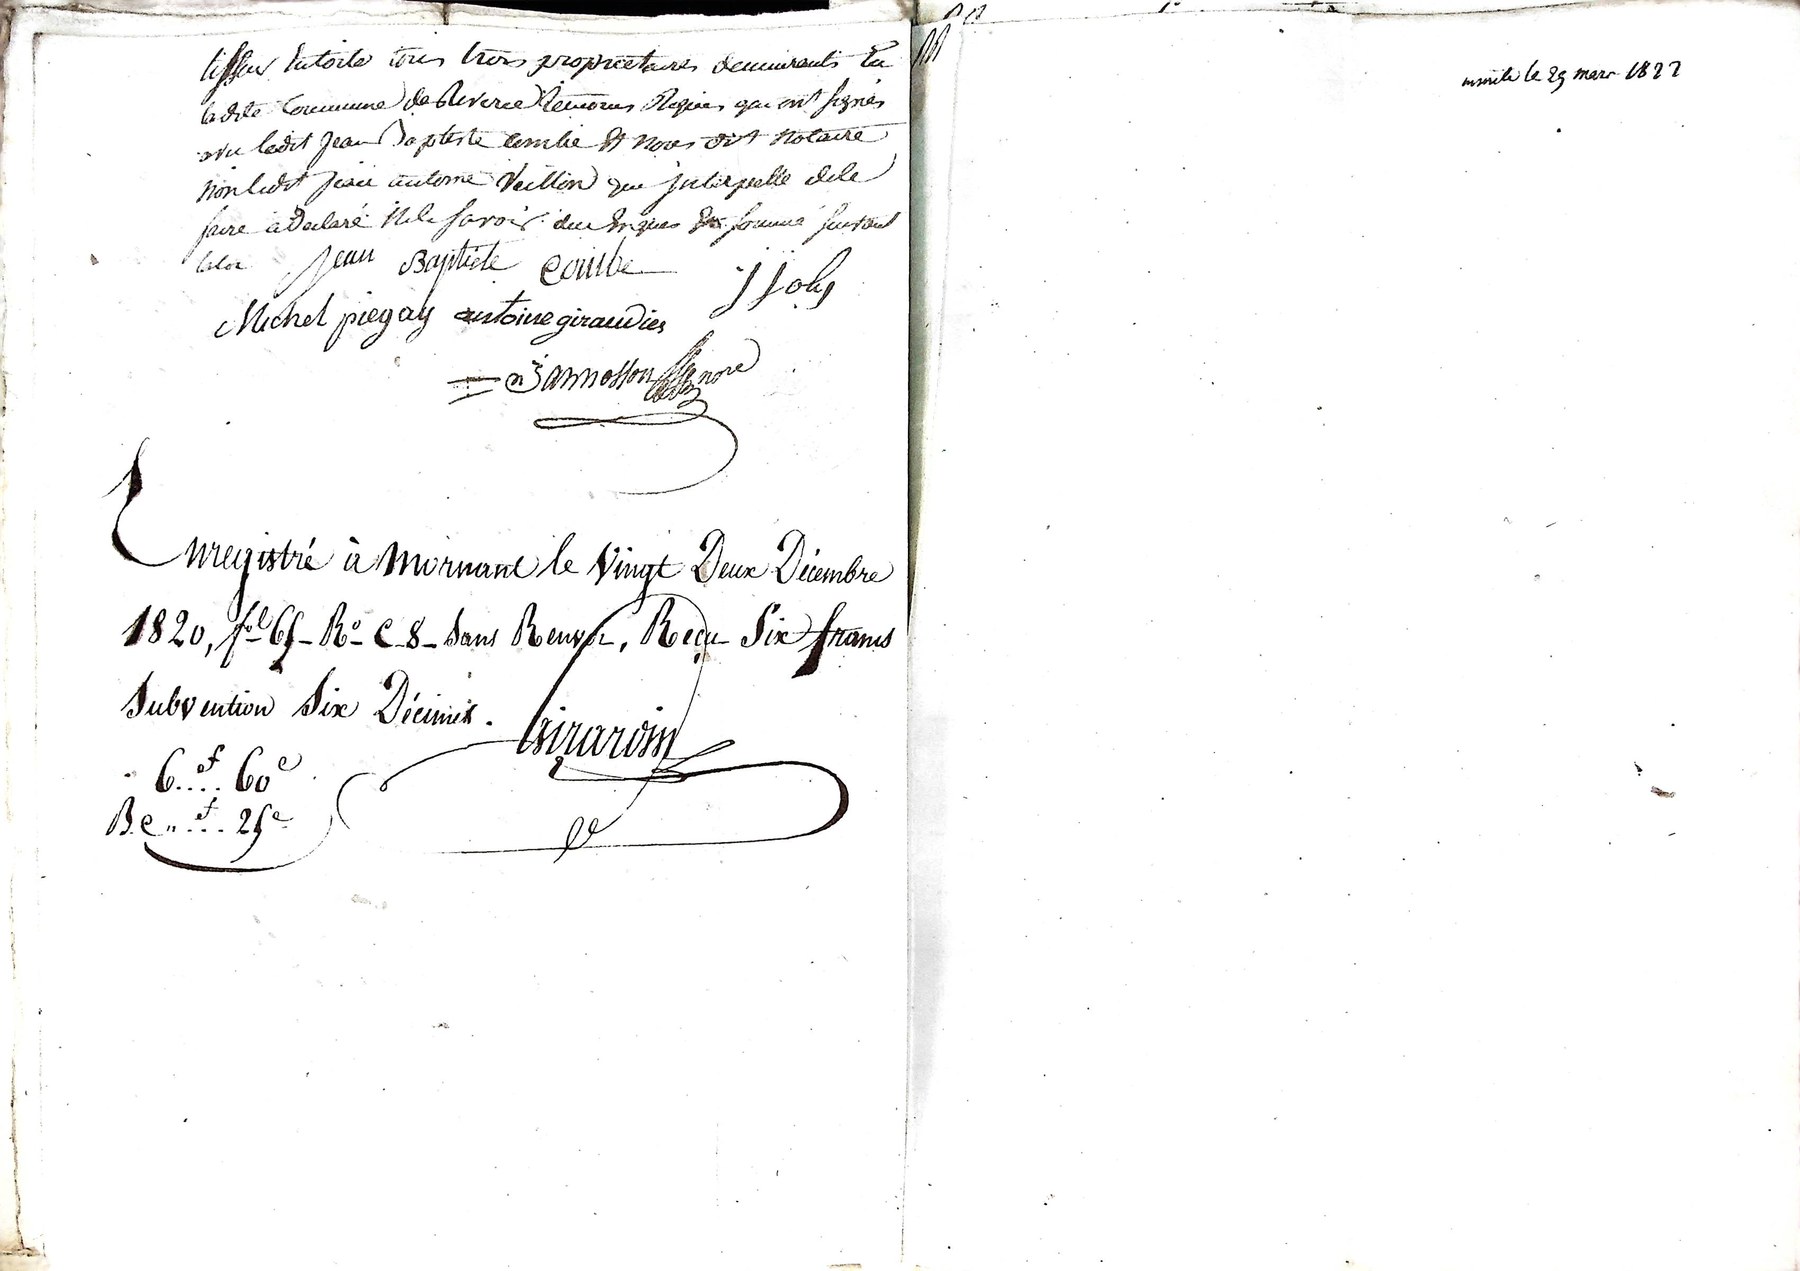 tisseur en toile tous trois propriétaires demeurants en
ladite Commune de Riverie témoins Requis qui ont signés
avec ledit Jean Baptiste Combe Et nous dit notaire
non ledit Jean antoine Veillon que Interpellé de le
faire a Declaré Ne le savoir. deu Enquis Et sommé suivant
la loi Jean Baptiste Combe
Michel piegay antoine giraudier
Jannosson nore
Enregistré à Mornant le Vingt Deux Décembre
1820, fol 65 Ro C 8 Sans Renvoi. Reçu Six francs
Subvention Six Décimes. Girardin
6....f 60c
B.C.... f 25c
minute le 29 mars 1822